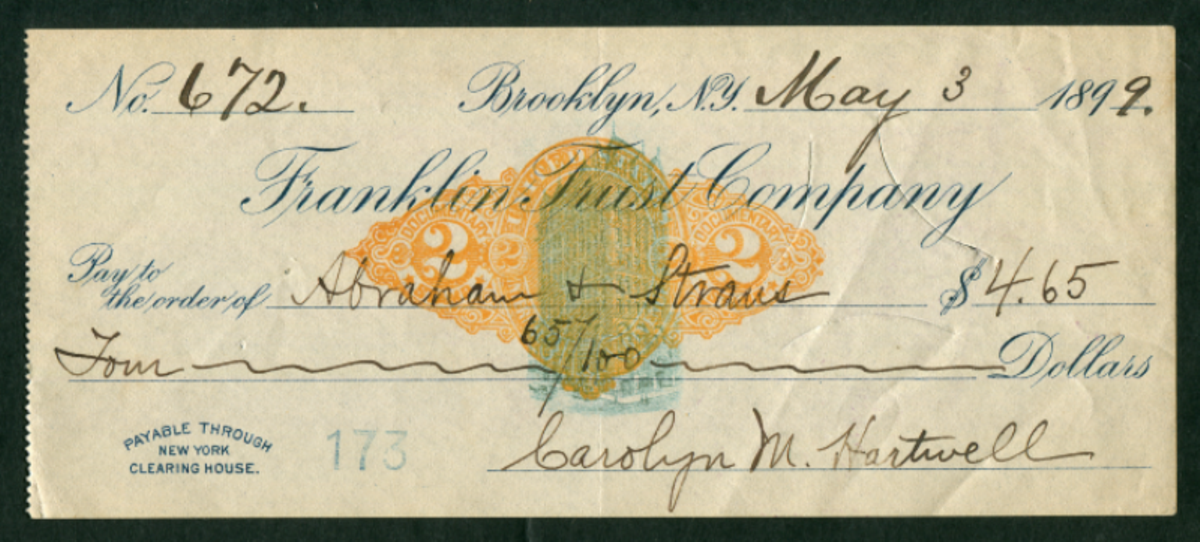 No. 672. Brooklyn, N.Y. May 3 1899.
Franklin Trust Company
DOCUMENTARY 2 2 2 DOCUMENTARY
Pay to the order of Abraham & Straus $4.65
Four 65/100 Dollars
PAYABLE THROUGH
NEW YORK
CLEARING HOUSE.
173
Carolyn M. Hartwell